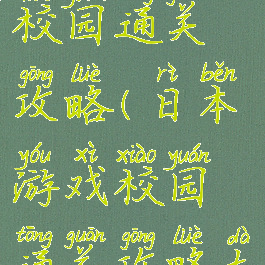 校园通关
gōng lüè rì běn
攻略(日本
yóu xì xiào yuán
游戏校园
tōng guān gōng lüè dà
通关攻略大